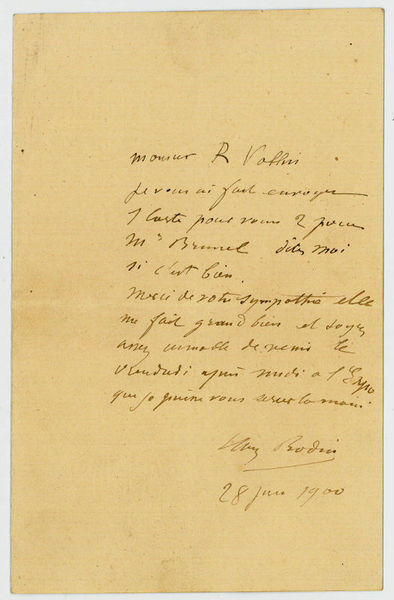 monsieur R Vallin
je vous ai fait envoyer
1 carte pour vous 2 pour
Mr Brunel dites moi
si c'est bien.
Merci de votre sympathie elle
me fait grand bien et soyez
assez aimable de venir le
vendredi après midi a l'Expo
que je puisse vous serrer la main.
Aug Rodin
28 juin 1900